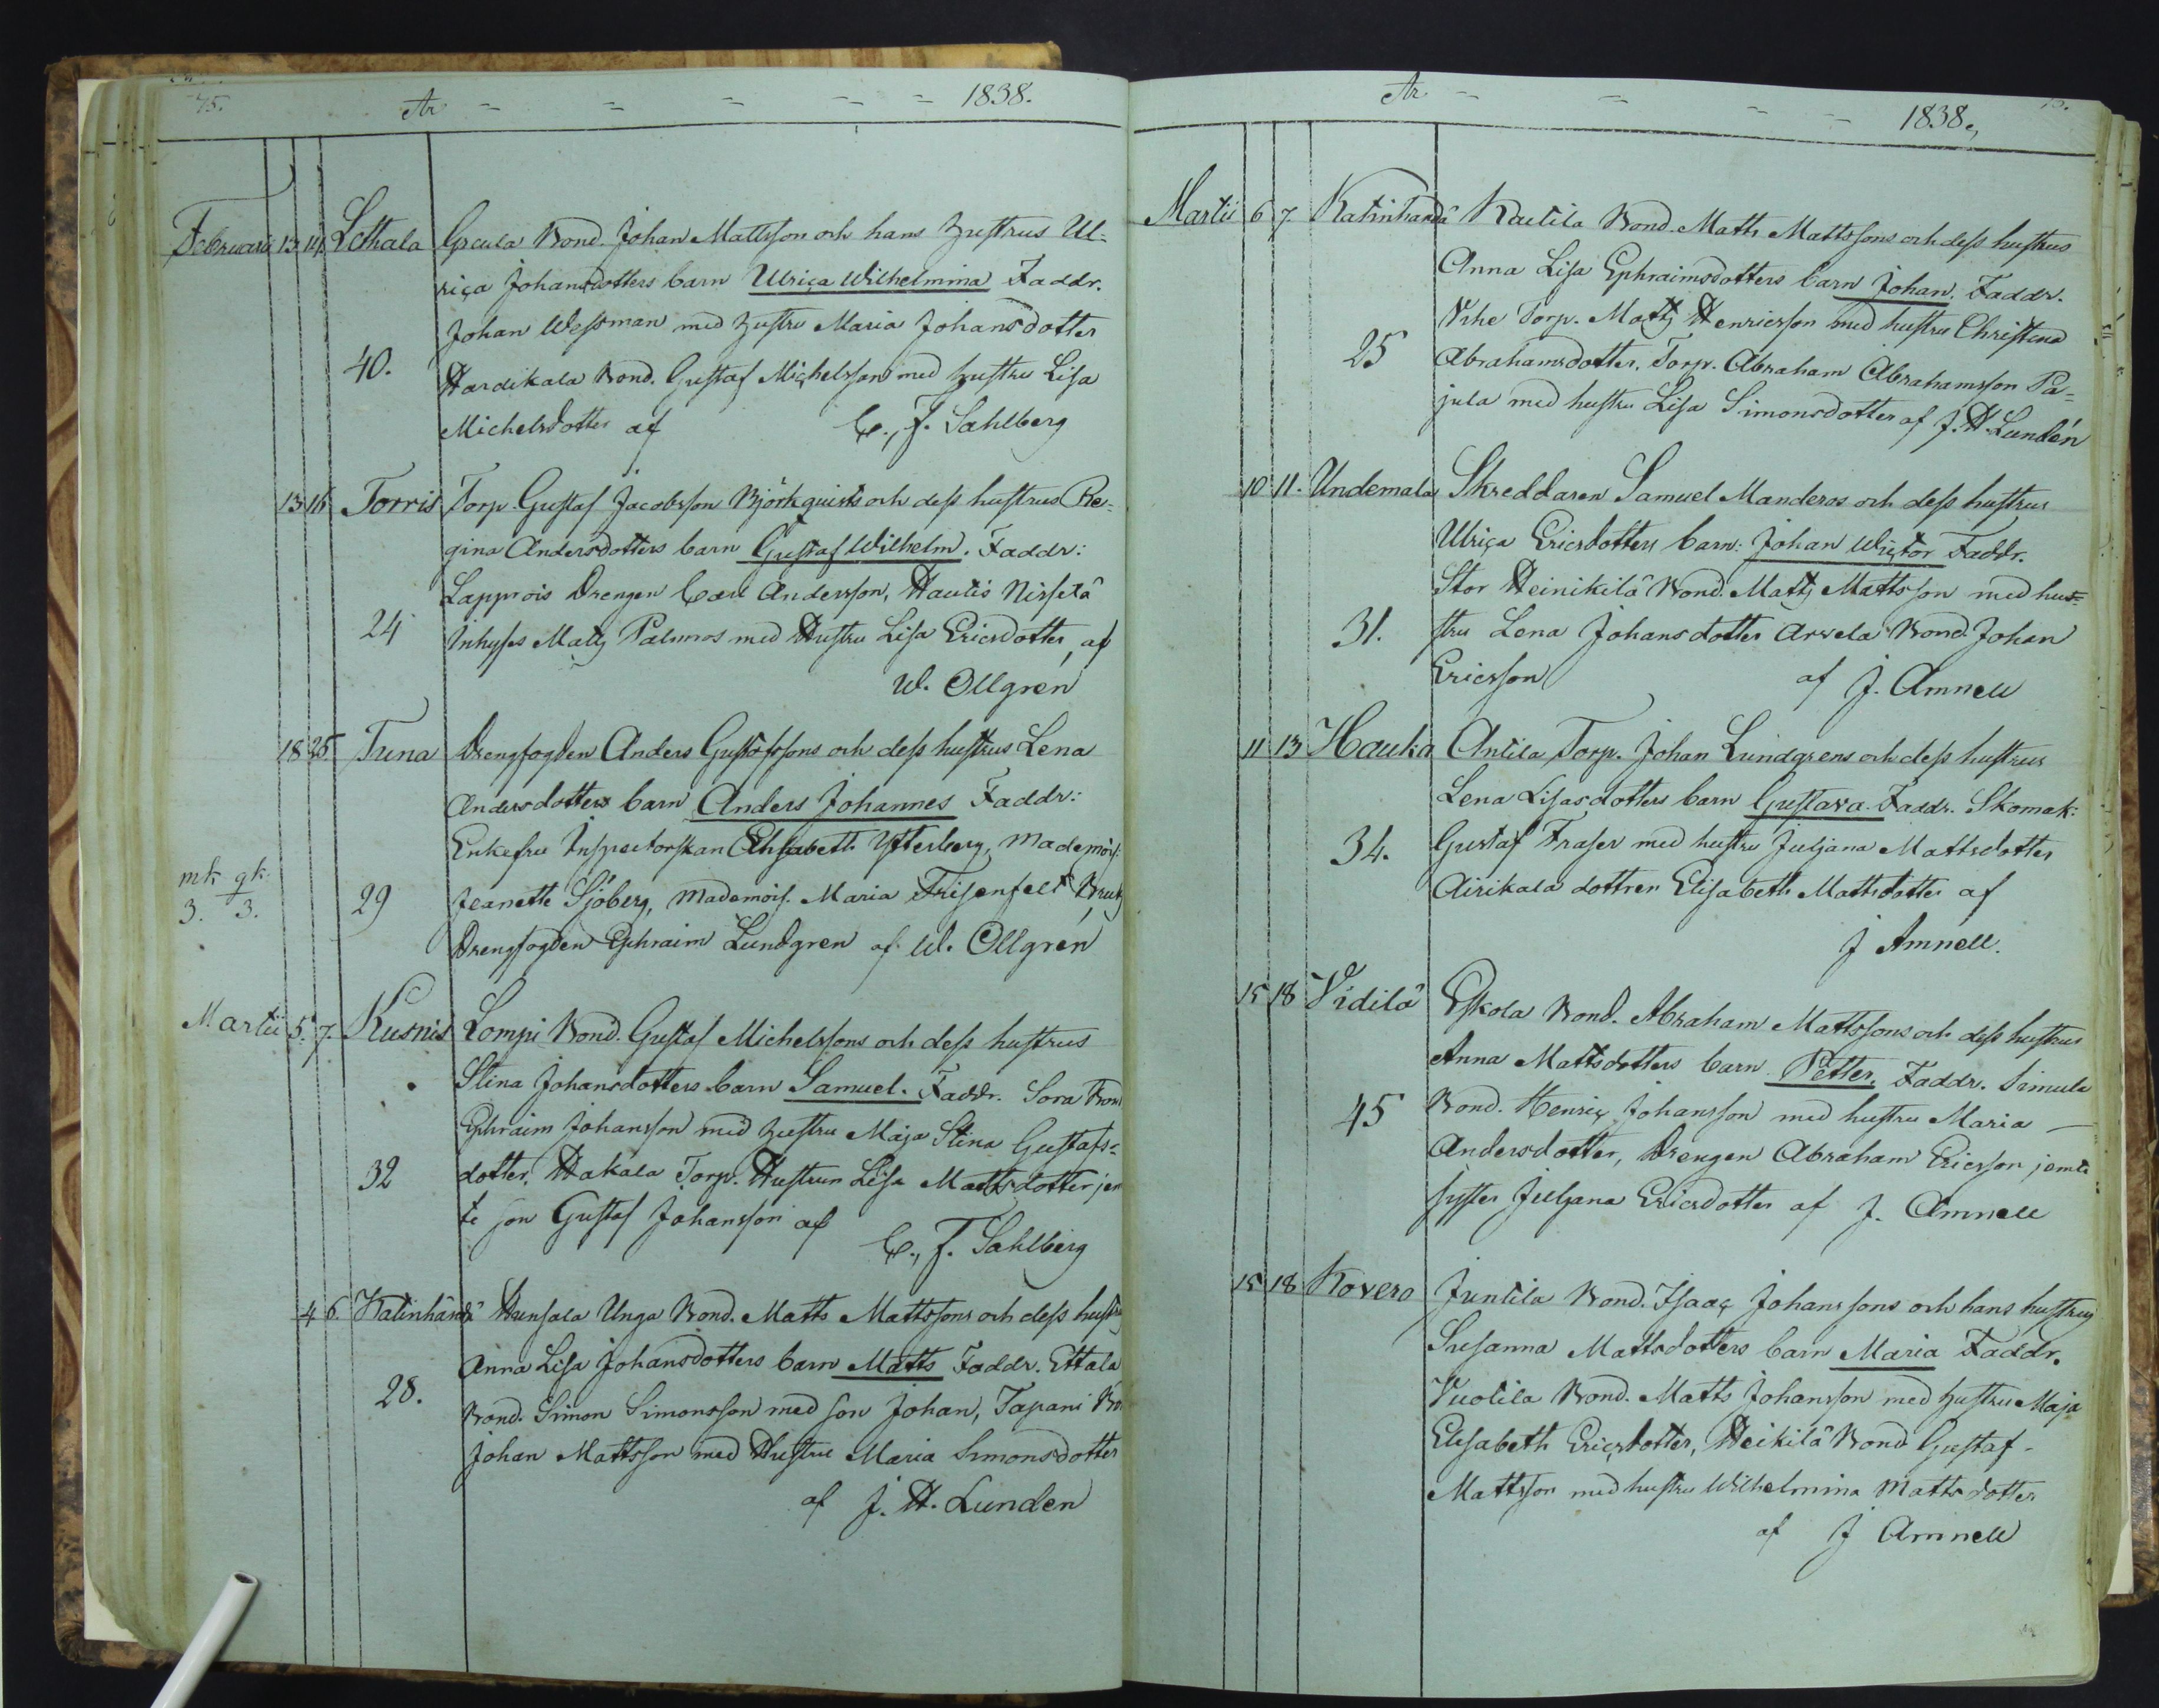 75.
År = = = = = 1838.
Februarii 13 14. Lethala Grcula Bond. Johan Mattsson och hans hustrus Ul-
rica Johansdotters barn Ulrica Wilhelmina Faddr.
Johan Wessman med hustru Maria Johansdotter
40. Hardikala Bond. Gustaf Michelsson med hustru Lisa
Michelsdotter af C. F. Sahlberg
13 16 Torris Torp. Gustaf Jacobsson Björkquists och dess hustrus Re-
gina Andersdotters barn Gustaf Wilhelm. Faddr:
Lapprois Drengen Carl Andersson, Hautis Nissilä
24 Inhyses Matts Palmros med Hustru Lisa Ericsdotter, af
W. Ollgren
18 25 Tuna Drengfogden Anders Gustafssons och dess hustrus Lena
Andersdotters barn Anders Johannes Faddr:
Enkefru Inspectorskan Elisabeth Ytterberg, Mademois:
mk gk:
3. 3.
29 Jeanette Sjöberg, Mademois. Maria Frisenfelt
Drengfogden Ephraim Lundgren af W. Ollgren
Martii 5. 7. Kusnis Lompi Bond. Gustaf Michelssons och dess hustrus
Stina Johansdotters barn Samuel. Faddr. Sora Bond
Ephraim Johansson med hustru Maja Stina Gustafs-
32 dotter, Hakala Torp. Hustrun Lisa Mattsdotter jem
te son Gustaf Johansson af
C. F. Sahlberg
4 6. Katinhändä Hunsala Unga Bond. Matts Mattssons och dess hustrus
Anna Lisa Johansdotters barn Matts Faddr. Ettala
28. Bond. Simon Simonsson med son Johan, Tapani Bo
Johan Mattsson med Hustru Maria Simonsdotter
af J. H. Lunden
År = = = = 1838.
Martii 6 7. Katinhändä Rautila Bond. Matts Mattssons och dess hustrus
Anna Lisa Ephraimsdotters barn Johan. Faddr.
Torp. Matts Henricsson med hustru Christina
25 Abrahamsdotter, Torp. Abraham Abrahamsson Pa-
jula med hustru Lisa Simonsdotter af J. H. Lundén
10 11. Undemala Skreddaren Samuel Manderos och dess hustrus
Ulrica Ericsdotters barn: Johan Wictor Faddr.
Stor Heinikilä Bond. Matts Mattsson med hu-
31. stru Lena Johansdotter Arvela Bond. Johan
Ericsson af J. Amnell
11 13 Hauka Antila Torp. Johan Lundgrens och dess hustrus
Lena Lisasdotters barn Gustava. Faddr. Skomak:
34. Gustaf Fraser med hustru Juljana Mattsdotter
Airikala dottren Elisabeth Mattsdotter af
J Amnell.
15 18 Vidilä Eskola Bond. Abraham Mattssons och dess hustrus
Anna Mattsdotters barn Petter. Faddr. Simula
45 Bond. Henric Johansson med hustru Maria —
Andersdotter, Drengen Abraham Ericsson jemte
syster Juljana Ericsdotter af J. Amnell
15 18 Kovero Juntila Bond. Isaac Johanssons och hans hustrus
Susanna Mattsdotters barn Maria Faddr.
Vuolila Bond. Matts Johansson med hustru Maja
Elisabeth Ericsdotter, Heikilä Bond Gustaf -
Mattsson med hustru Wilhelmina Mattsdotter
af J Amnell